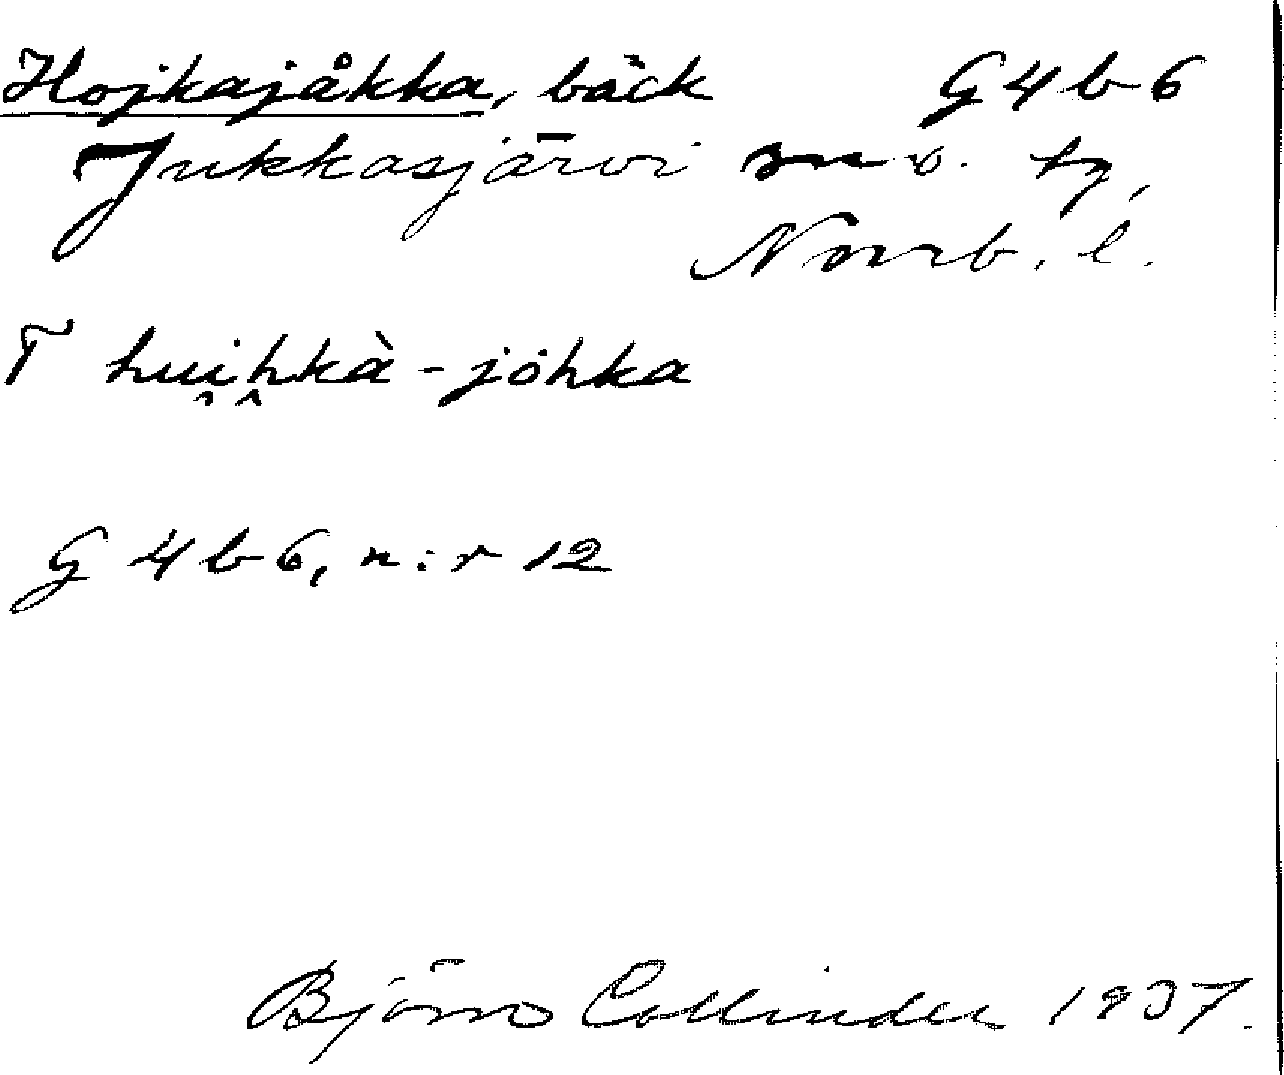 Hojkajåkka, bäck G4b6
Jukkasjärvi sn o. tg,
Norrb. l.
T hui̭h̭kà-jòhka
G 4b6, n:r 12
Björn Collinder 1937.